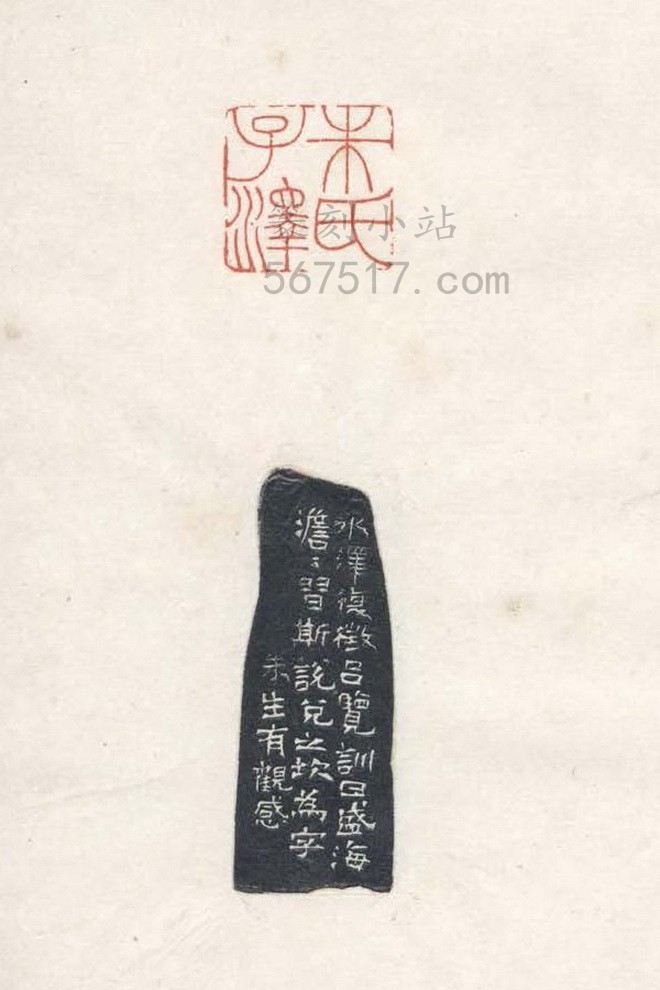 朱氏
子澤
篆刻小站
567517.com
水澤復徵呂覽訓曰盛海
澹〻習斯說兌之坎為字
朱生有觀感